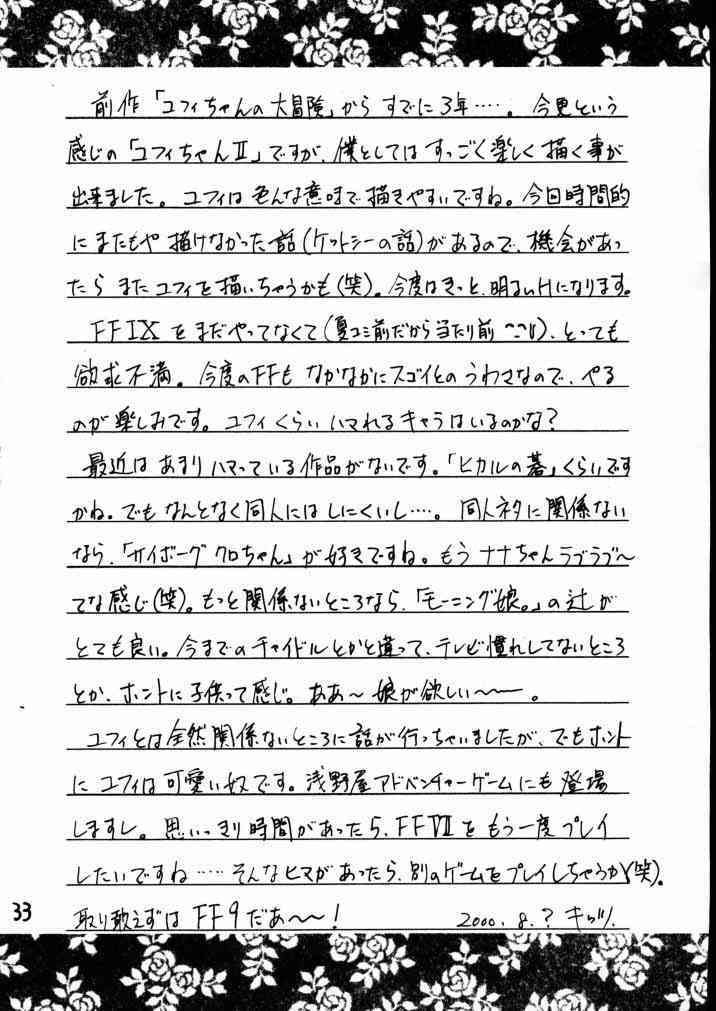 前作「ユフィちゃんの大冒険」からすでに3年‥‥。今更という
感じの「ユフィちゃんⅡ」ですが、僕としてはすっごく楽しく描く事が
出来ました。ユフィは色んな意味で描きやすいですね。今回時間的
にまたもや描けなかった話(ケットシーの話)があるので、機会があっ
たらまたユフィを描いちゃうかも(笑)。今度はきっと、明るいHになります。
FFIXをまだやってなくて(夏コミ前だから当たり前^^;)、とっても
欲求不満。今度のFFもなかなかにスゴイとのうわさなので、やる
のが楽しみです。ユフィくらいハマれるキャラはいるのかな?
最近はあまりハマっている作品がないです。「ヒカルの碁」くらいです
かね。でもなんとなく同人にはしにくいし‥‥。同人ネタに関係ない
なら、「サイボーグクロちゃん」が好きですね。もうナナちゃんラブラブ〜
てな感じ(笑)。もっと関係ないところなら、「モーニング娘。」の辻が
とても良い。今までのチャイドルとかと違って、テレビ慣れしてないところ
とか、ホントに子供って感じ。ああ〜娘が欲しい〜〜。
ユフィとは全然関係ないところに話が行っちゃいましたが、でもホント
にユフィは可愛い奴です。浅野屋アドベンチャーゲームにも登場
しますし。思いっきり時間があったら、FFⅦをもう一度プレイ
したいですね‥‥そんなヒマがあったら、別のゲームをプレイしちゃうか(笑)。
取り敢えずはFF9だあ〜〜!
2000.8.?
33